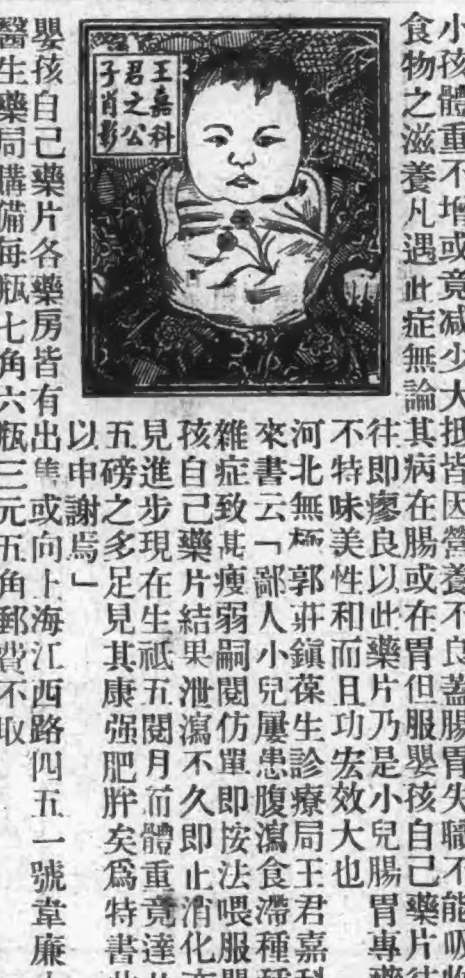 小孩體重不增或竟減少大抵皆因營養不良蓋腸胃失職不能吸收
食物之滋養凡遇此症無論其病在腸或在胃但服嬰孩自己藥片
往即瘳良以此藥片乃是小兒腸胃專藥
不特味美性和而且功宏效大也
河北無極郭莊鎮葆生診療局王君嘉科
來書云「鄙人小兒屢患腹瀉食滯種種
雜症致甚瘦弱嗣閱仿單即按法喂服嬰
孩自己藥片結果泄瀉不久即止消化
見進步現在生祇五閱月而體重竟達
五磅之多足見其康强肥胖矣爲特書此
以申謝焉」
王嘉科
君之公
子肖影
嬰孩自己藥片各藥房皆有出售或向上海江西路四五一號韋廉
醫生藥局購備每瓶七角六瓶三元五角郵費不取